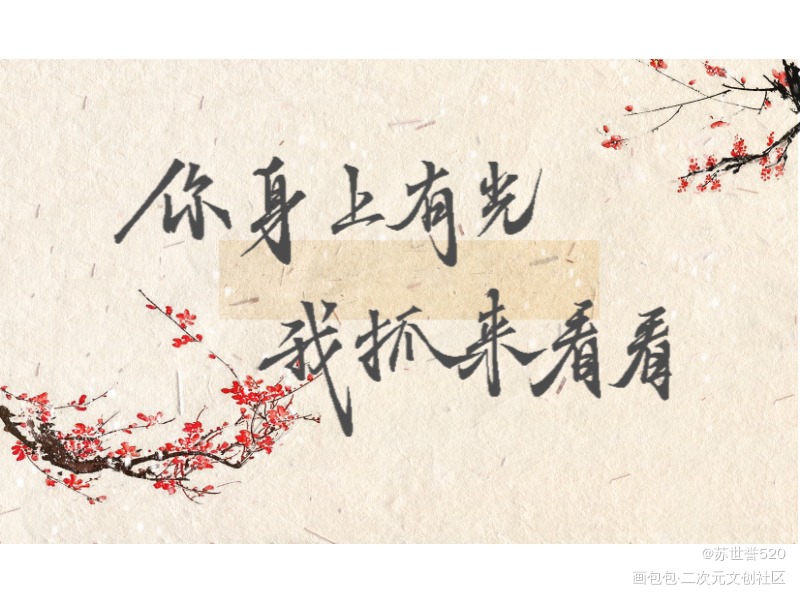 你身上有光
我抓来看看
@苏世誉520
画包包·二次元文创社区